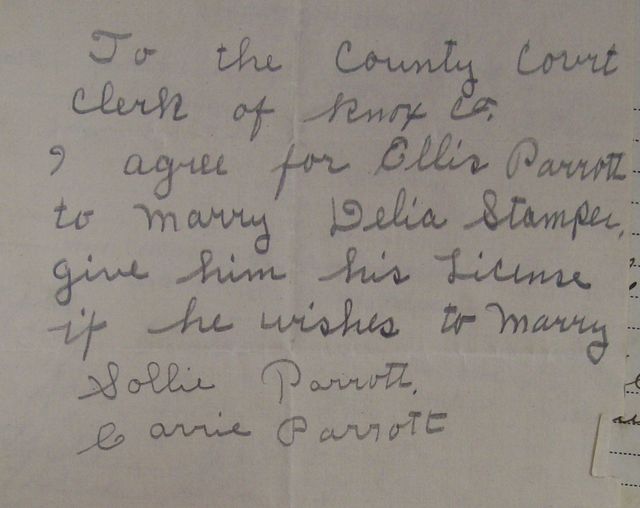 To the County Court
Clerk of Knox Co.
I agree for Ellis Parrott
to marry Delia Stamper,
give him his License
if he wishes to Marry
Sollie Parrott,
Carrie Parrott